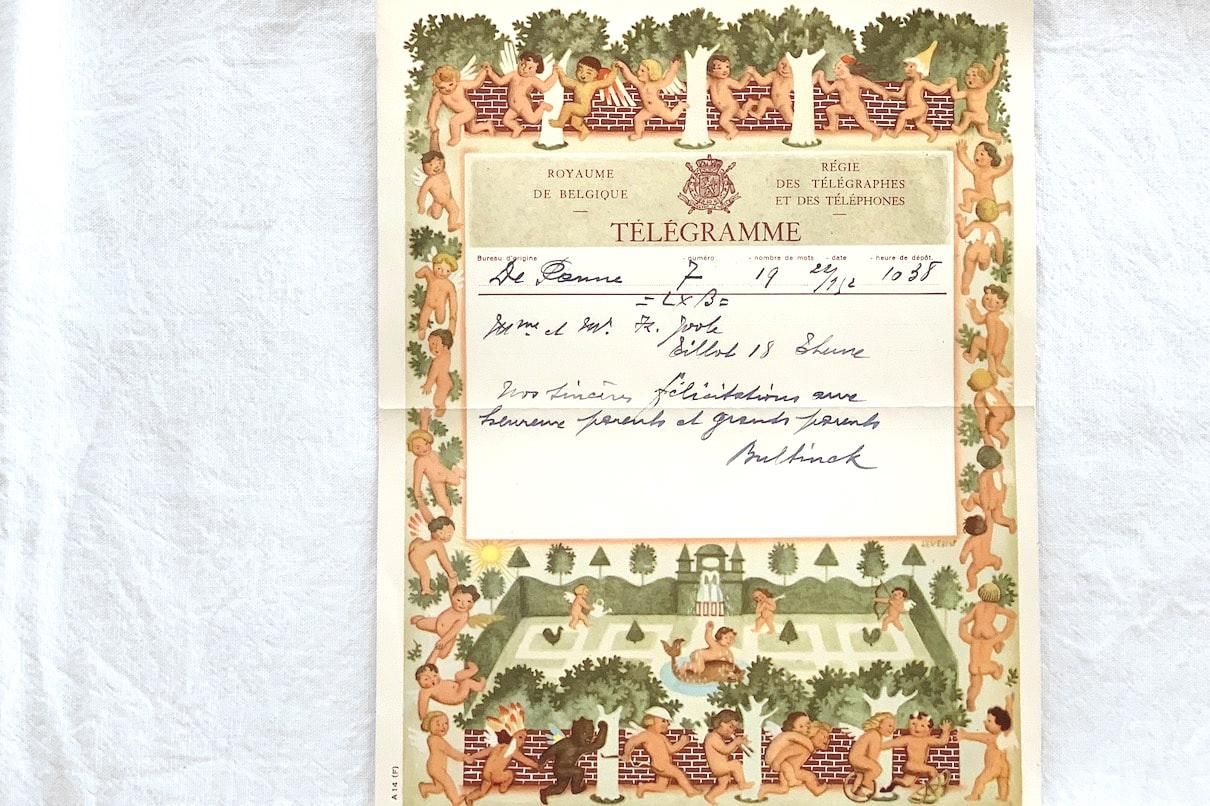 ROYAUME
DE BELGIQUE
RÉGIE
DES TÉLÉGRAPHES
ET DES TÉLÉPHONES
TÉLÉGRAMME
Bureau d'origine - numéro - nombre de mots - date - heure de dépôt.
De Panne 7 19 22/ 1038
= LX3 =
Mme et Mr.
18
Nos sincères félicitations aux
heureux parents et grands parents
Bultinck
A14 (F)